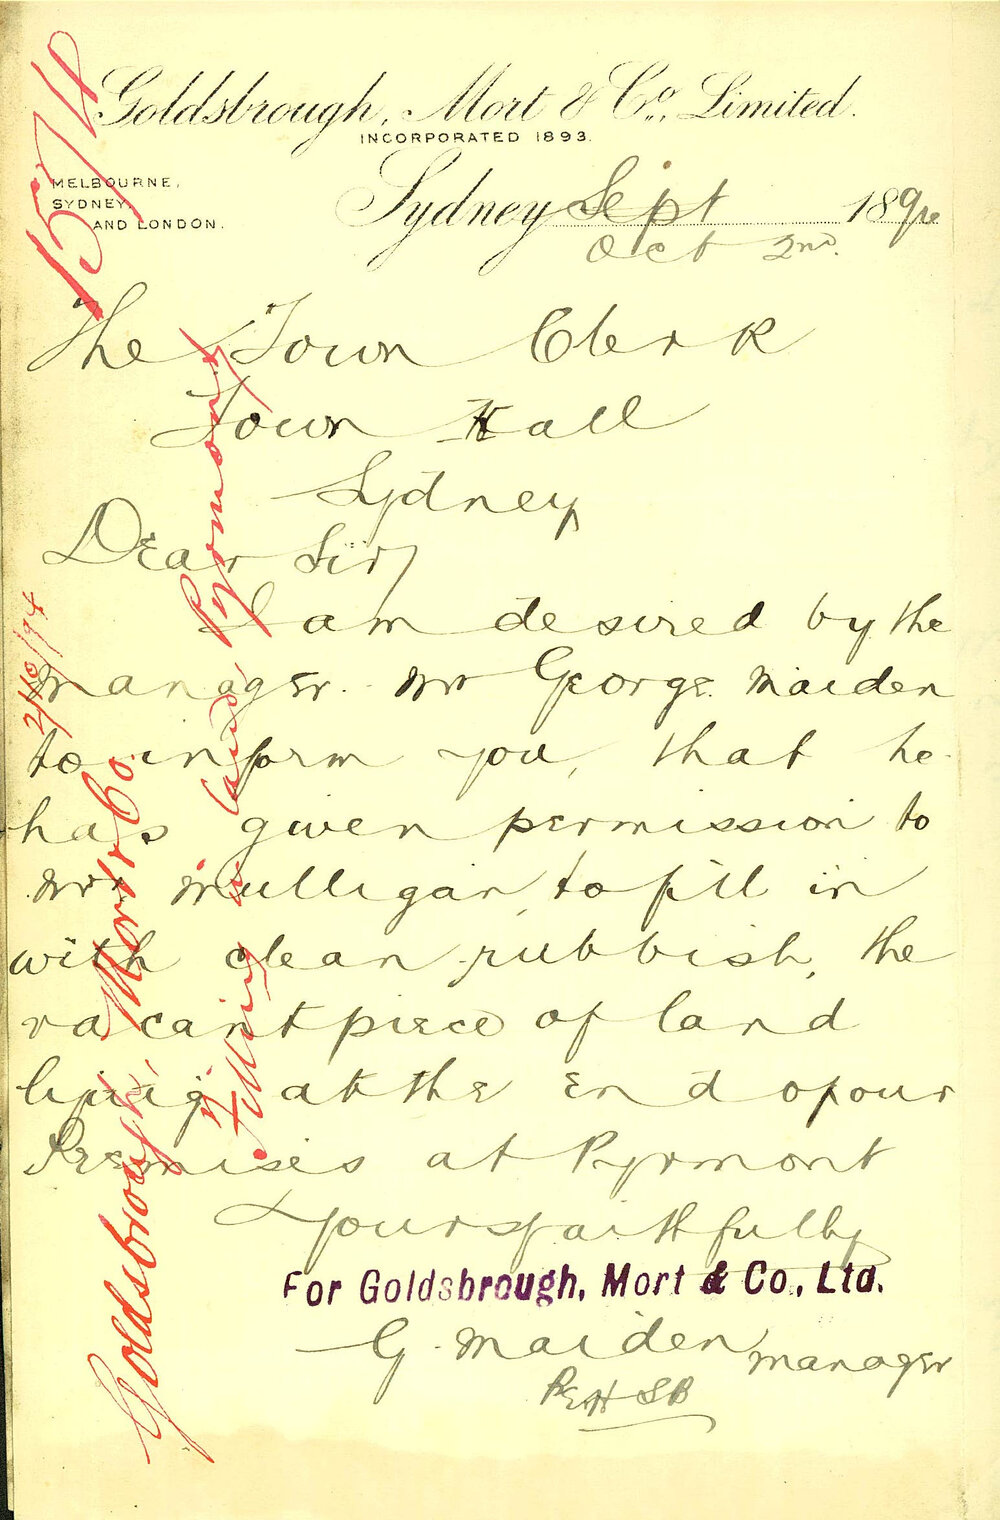 Goldsbrough, Mort & Co., Limited.
INCORPORATED 1893.
MELBOURNE,
SYDNEY,
AND LONDON.
Sydney Sept 189
Oct 2nd.
The Town Clerk
Town Hall
Sydney
Dear Sir,
I am desired by the
manager. Mr George Maiden
to inform you, that he
has given permission to
Mr Mulligan, to fill in
with clean rubbish, the
vacant piece of land
lying at the end of our
Premises at Pyrmont
Yours faithfully
For Goldsbrough, Mort & Co., Ltd.
G. Maiden manager
1574
2/10/94
Goldsbrough, Mort & Co.
Filling in land, Pyrmont